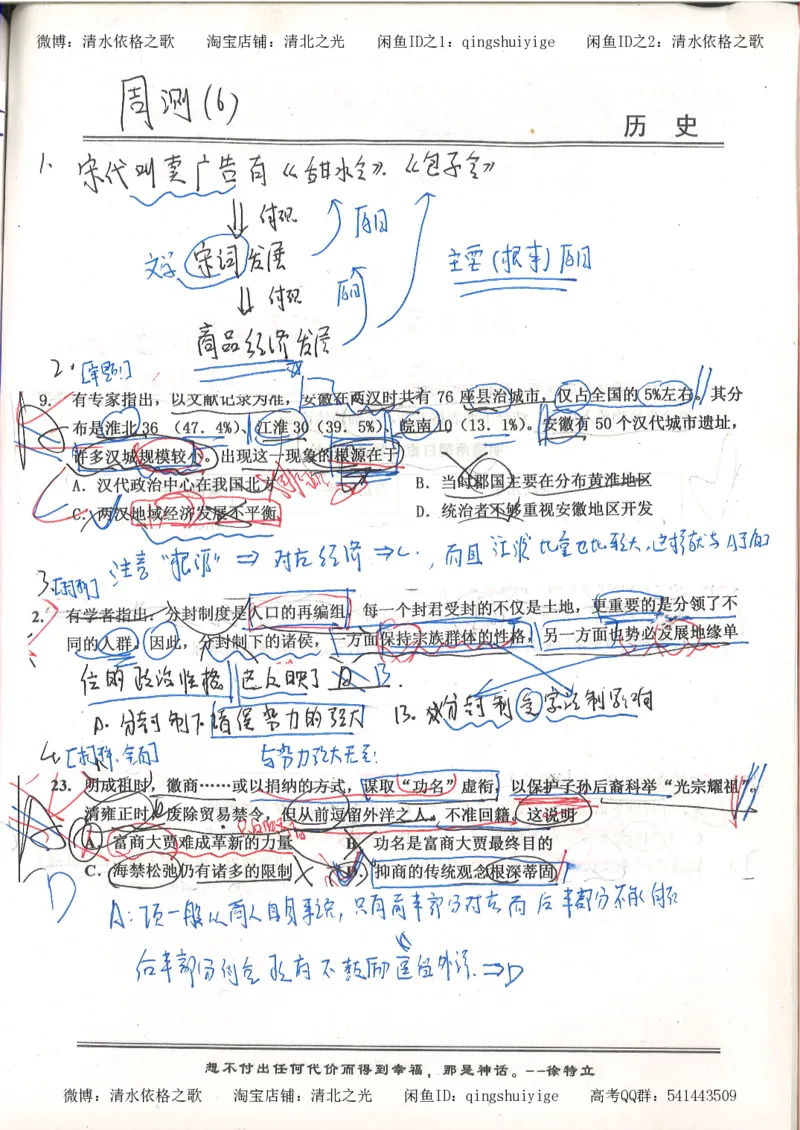 微博：清水依格之歌 淘宝店铺：清北之光 闲鱼ID之1：qingshuiyige 闲鱼ID之2：清水依格之歌
周测(6)
历 史
1. 宋代叫卖广告有《甜水令》、《包子令》
体现 原因
文学 宋词发展 主要(根本)原因
体现 原因
商品经济发展
2.[审题]
9. 有专家指出，以文献记录为准，安徽在两汉时共有 76 座县治城市，仅占全国的 5%左右。其分
布是淮北 36 （47.4%）、江淮 30（39.5%）、皖南 10（13.1%）。安徽有 50 个汉代城市遗址，
许多汉城规模较小。出现这一现象的根源在于
A．汉代政治中心在我国北方 B．当时郡国主要在分布黄淮地区
C．两汉地域经济发展不平衡 D．统治者不够重视安徽地区开发
注意“根源”⇒ 对应经济 ⇒C.，而且江淮比重也比较大，
3.
2. 有学者指出：分封制度是人口的再编组，每一个封君受封的不仅是土地，更重要的是分领了不
同的人群。因此，分封制下的诸侯，一方面保持宗族群体的性格，另一方面也势必发展地缘单
位的政治性格 这反映了 B.
A. 分封制下诸侯势力的强大 B. 分封制受宗法制影响
4. 与势力强大无关
23. 明成祖时，徽商……或以捐纳的方式，谋取“功名”虚衔，以保护子孙后裔科举“光宗耀祖”。
清雍正时，废除贸易禁令，但从前逗留外洋之人，不准回籍。这说明
A．富商大贾难成革新的力量 B．功名是富商大贾最终目的
C．海禁松弛仍有诸多的限制 D．抑商的传统观念根深蒂固
D
A：项一般从商人自身来说，只有前半部分对应而后半部分不能体现
后半部分 政府不鼓励 ⇒D
想不付出任何代价而得到幸福，那是神话。--徐特立
微博：清水依格之歌 淘宝店铺：清北之光 闲鱼ID：qingshuiyige 高考QQ群：541443509